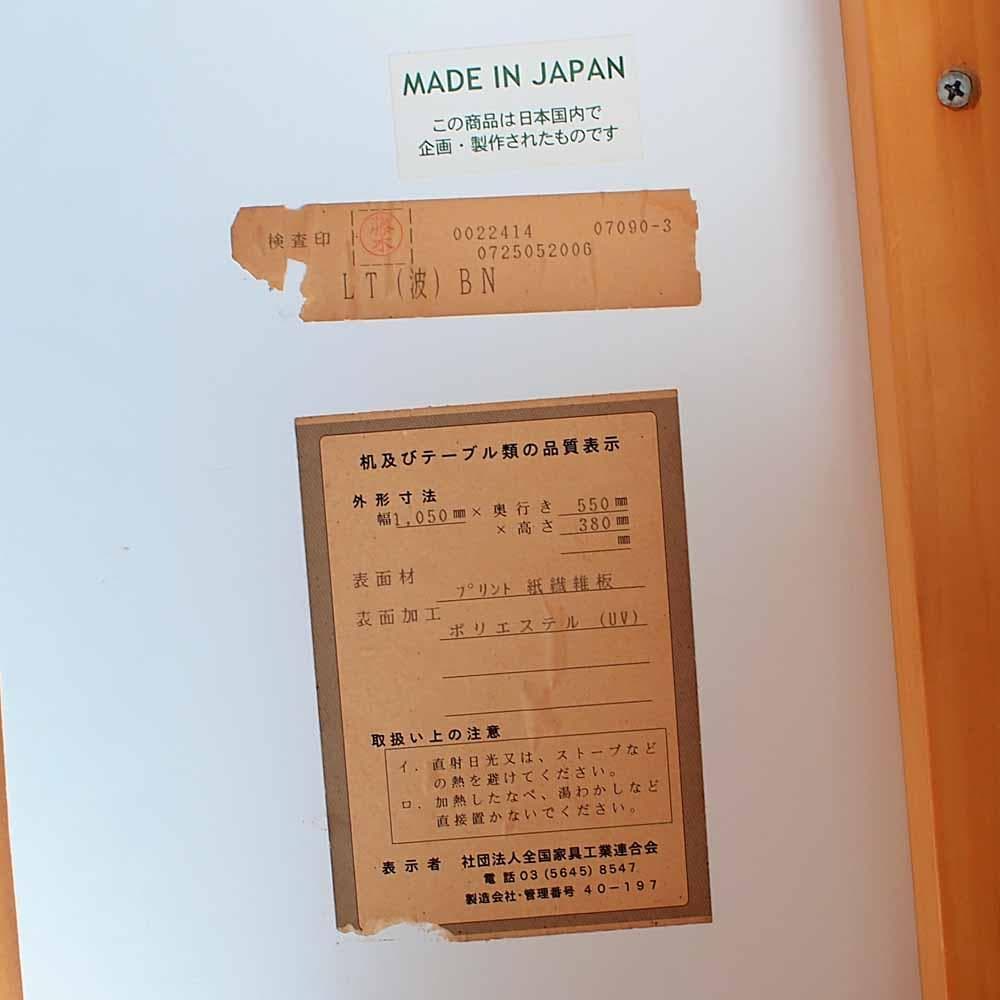 MADE IN JAPAN
この商品は日本国内で
企画・製作されたものです
検査印 0022414 07090-3
0725052006
LT(波)BN
机及びテーブル類の品質表示
外形寸法
幅1,050㎜×奥行き 550㎜
×高さ 380㎜
㎜
表面材 プリント 紙繊維板
表面加工 ポリエステル (UV)
取扱い上の注意
イ. 直射日光又は、ストーブなど
の熱を避けてください。
ロ. 加熱したなべ、湯わかしなど
直接置かないでください。
表示者 社団法人全国家具工業連合会
電話03(5645)8547
製造会社・管理番号 40-197